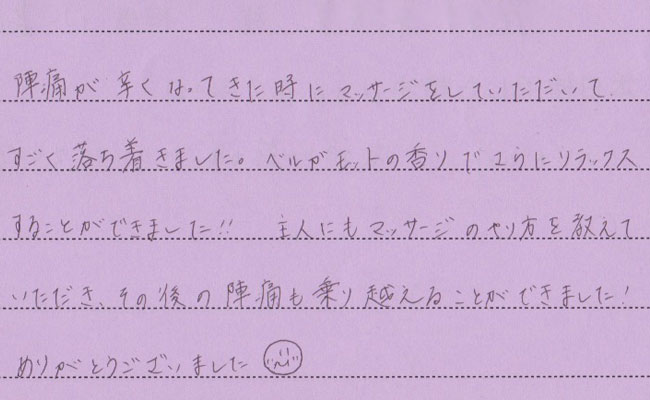 陣痛が辛くなってきた時にマッサージをしていただいて、
すごく落ち着きました。ベルガモットの香りでさらにリラックス
することができました!! 主人にもマッサージのやり方を教えて
いただき、その後の陣痛も乗り越えることができました!
ありがとうございました